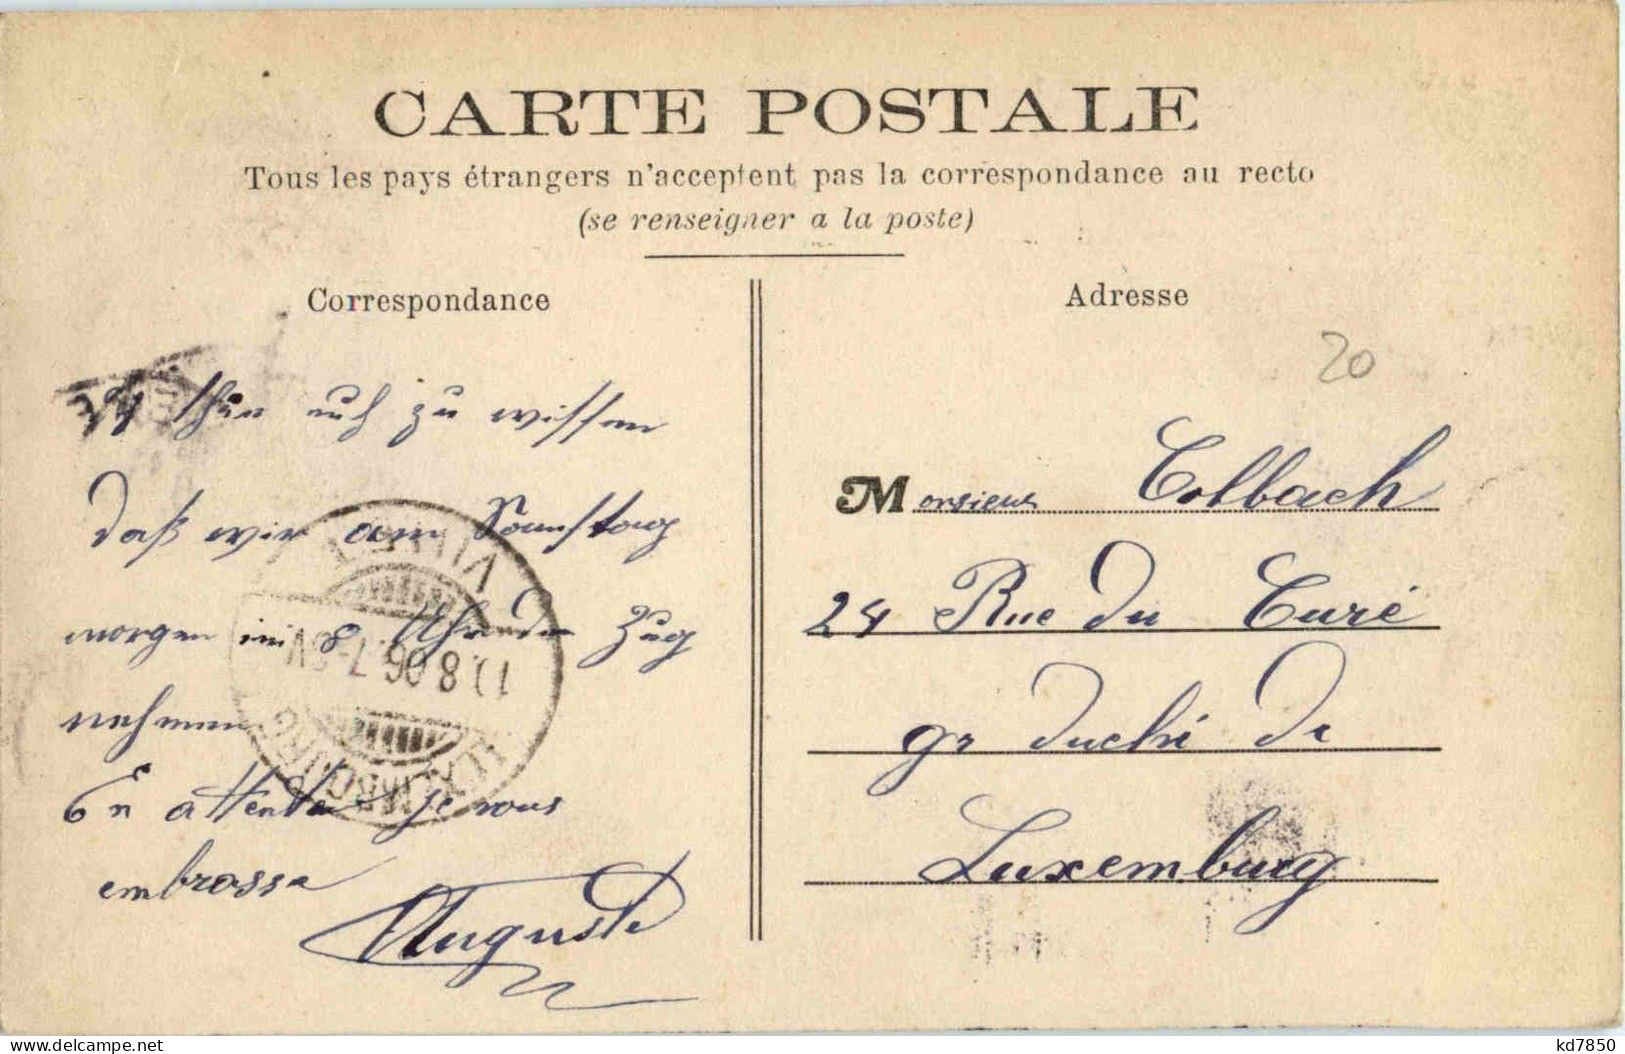 CARTE POSTALE
Tous les pays étrangers n'acceptent pas la correspondance au recto
(se renseigner a la poste)
Correspondance
Adresse
20
Ich thue euch zu wissen
daß wir am Samstag
morgen im 8 Uhr den Zug
nehmen
En attendant je vous
embrasse
Auguste
Monsieur Colbach
24 Rue du Curé
gr duché de
Luxemburg
VILLE
11.8.06. 7-8V
LUXEMBOURG
kd7850